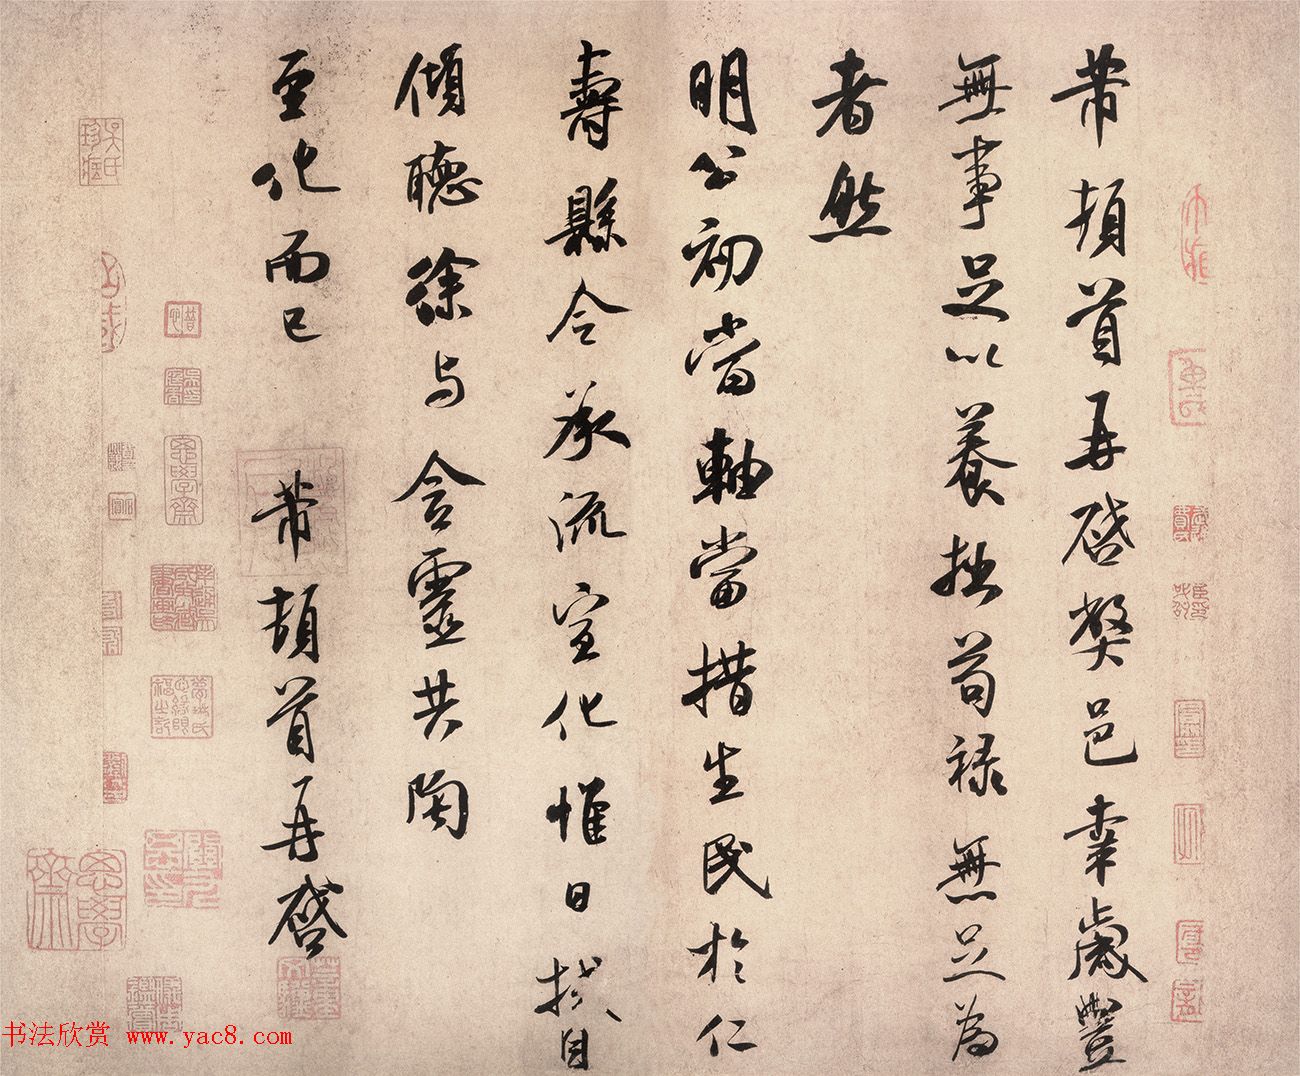 芾頓首再啓弊邑幸歲豐
無事足以養拙苟禄無足為
者然
明公初當軸當措生民於仁
壽縣令承流宣化惟日拭目
傾聽徐與含靈共陶
至化而已 芾頓首再啓
书法欣赏 www.yac8.com